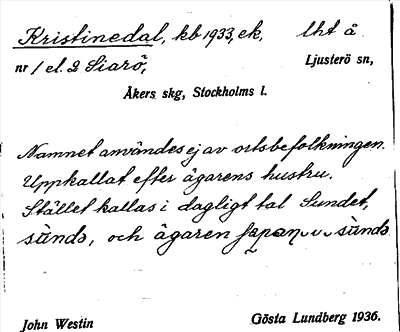 Kristinedal, kb 1933, ek, lht å
nr 1 el. 2 Siarö, Ljusterö sn,
Åkers skg, Stockholms l.
Namnet användes ej av ortsbefolkningen.
Uppkallat efter ägarens hustru.
Stället kallas i dagligt tal Sundet,
sùndə, och ägaren sùndə
John Westin Gösta Lundberg 1936.